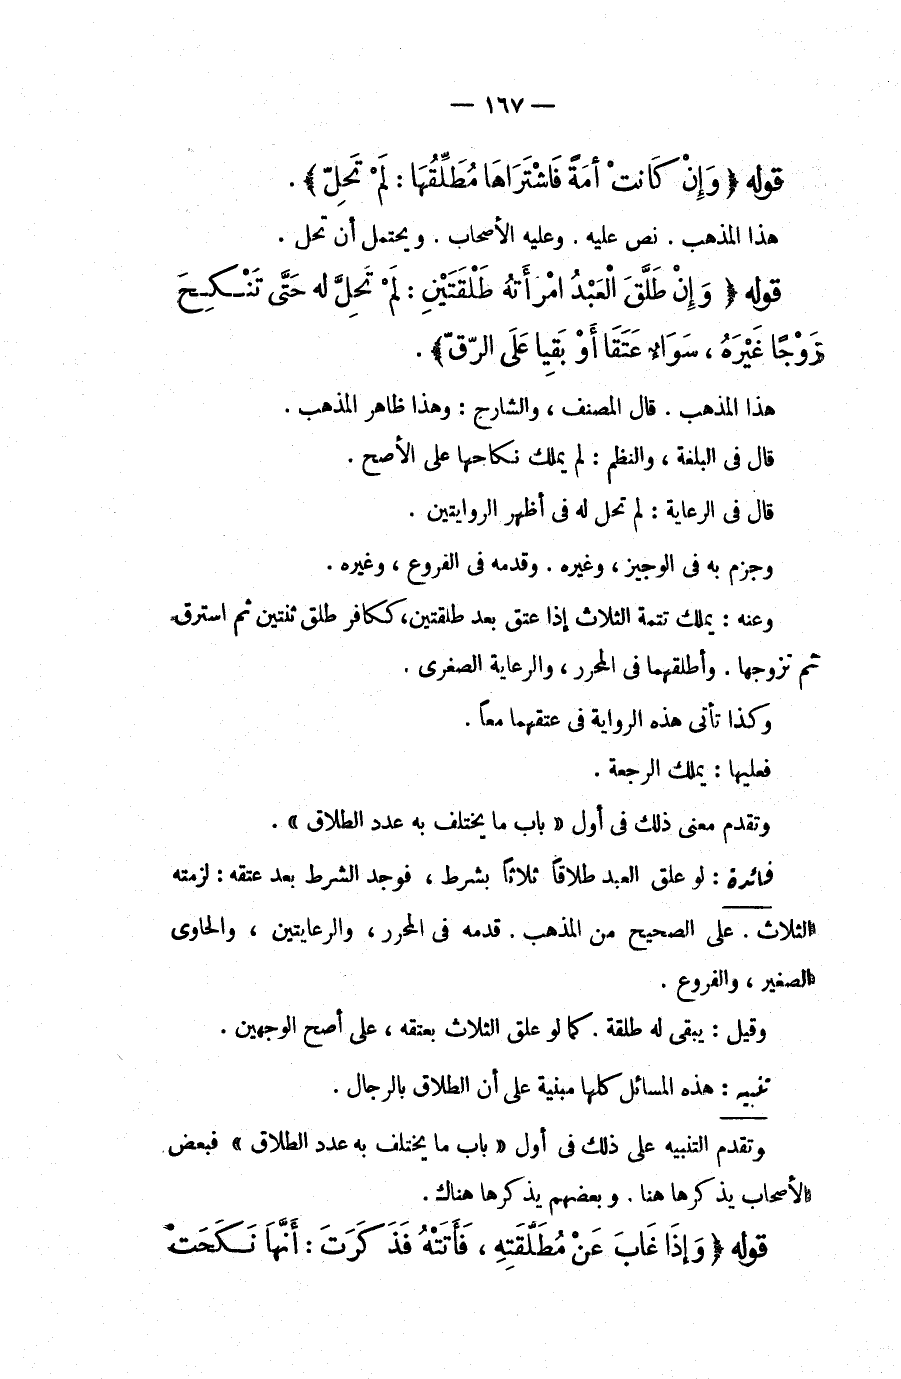 — ١٦٧ —
قوله ﴿ وَإِنْ كَانتْ أمَةً فَاشْتَرَاهَا مُطَلِّقُهَا : لَمْ تَحِلّ ﴾ .
هذا المذهب . نص عليه . وعليه الأصحاب . ويحتمل أن تحل .
قوله ﴿ وَإِنْ طَلَّقَ الْعَبْدُ امْرَأَتَهُ طَلْقَتَيْنِ : لَمْ تَحِلَّ له حَتَّى تَنْـكِـحَ
زَوْجًا غَيْرَهُ ، سَوَاءٌ عَتَقَا أَوْ بَقِيا عَلَى الرّقّ ﴾ .
هذا المذهب . قال المصنف ، والشارح : وهذا ظاهر المذهب .
قال فى البلغة ، والنظم : لم يملك نكاحها على الأصح .
قال فى الرعاية : لم تحل له فى أظهر الروايتين .
وجزم به فى الوجيز ، وغيره . وقدمه فى الفروع ، وغيره .
وعنه : يملك تتمة الثلاث إذا عتق بعد طلقتين ، ككافر طلق ثنتين ثم استرق.
ثم تزوجها . وأطلقهما فى المحرر ، والرعاية الصغرى .
وكذا تأتى هذه الرواية فى عتقهما معاً .
فعليها : يملك الرجعة .
وتقدم معنى ذلك فى أول « باب ما يختلف به عدد الطلاق » .
فائدة : لو علق العبد طلاقاً ثلاثاً بشرط ، فوجد الشرط بعد عتقه : لزمته
الثلاث . على الصحيح من المذهب . قدمه فى المحرر ، والرعايتين ، والحاوى
الصغير ، والفروع .
وقيل : يبقى له طلقة . كما لو علق الثلاث بعتقه ، على أصح الوجهين .
تنبيه : هذه المسائل كلها مبنية على أن الطلاق بالرجال .
وتقدم التنبيه على ذلك فى أول « باب ما يختلف به عدد الطلاق » فبعض
الأصحاب يذكرها هنا . وبعضهم يذكرها هناك .
قوله ﴿ وَإِذَا غَابَ عَنْ مُطَلَّقَتِهِ ، فَأَتَتْهُ فَذَكَرَتَ : أَنَّهَا نَـكَحَتْ